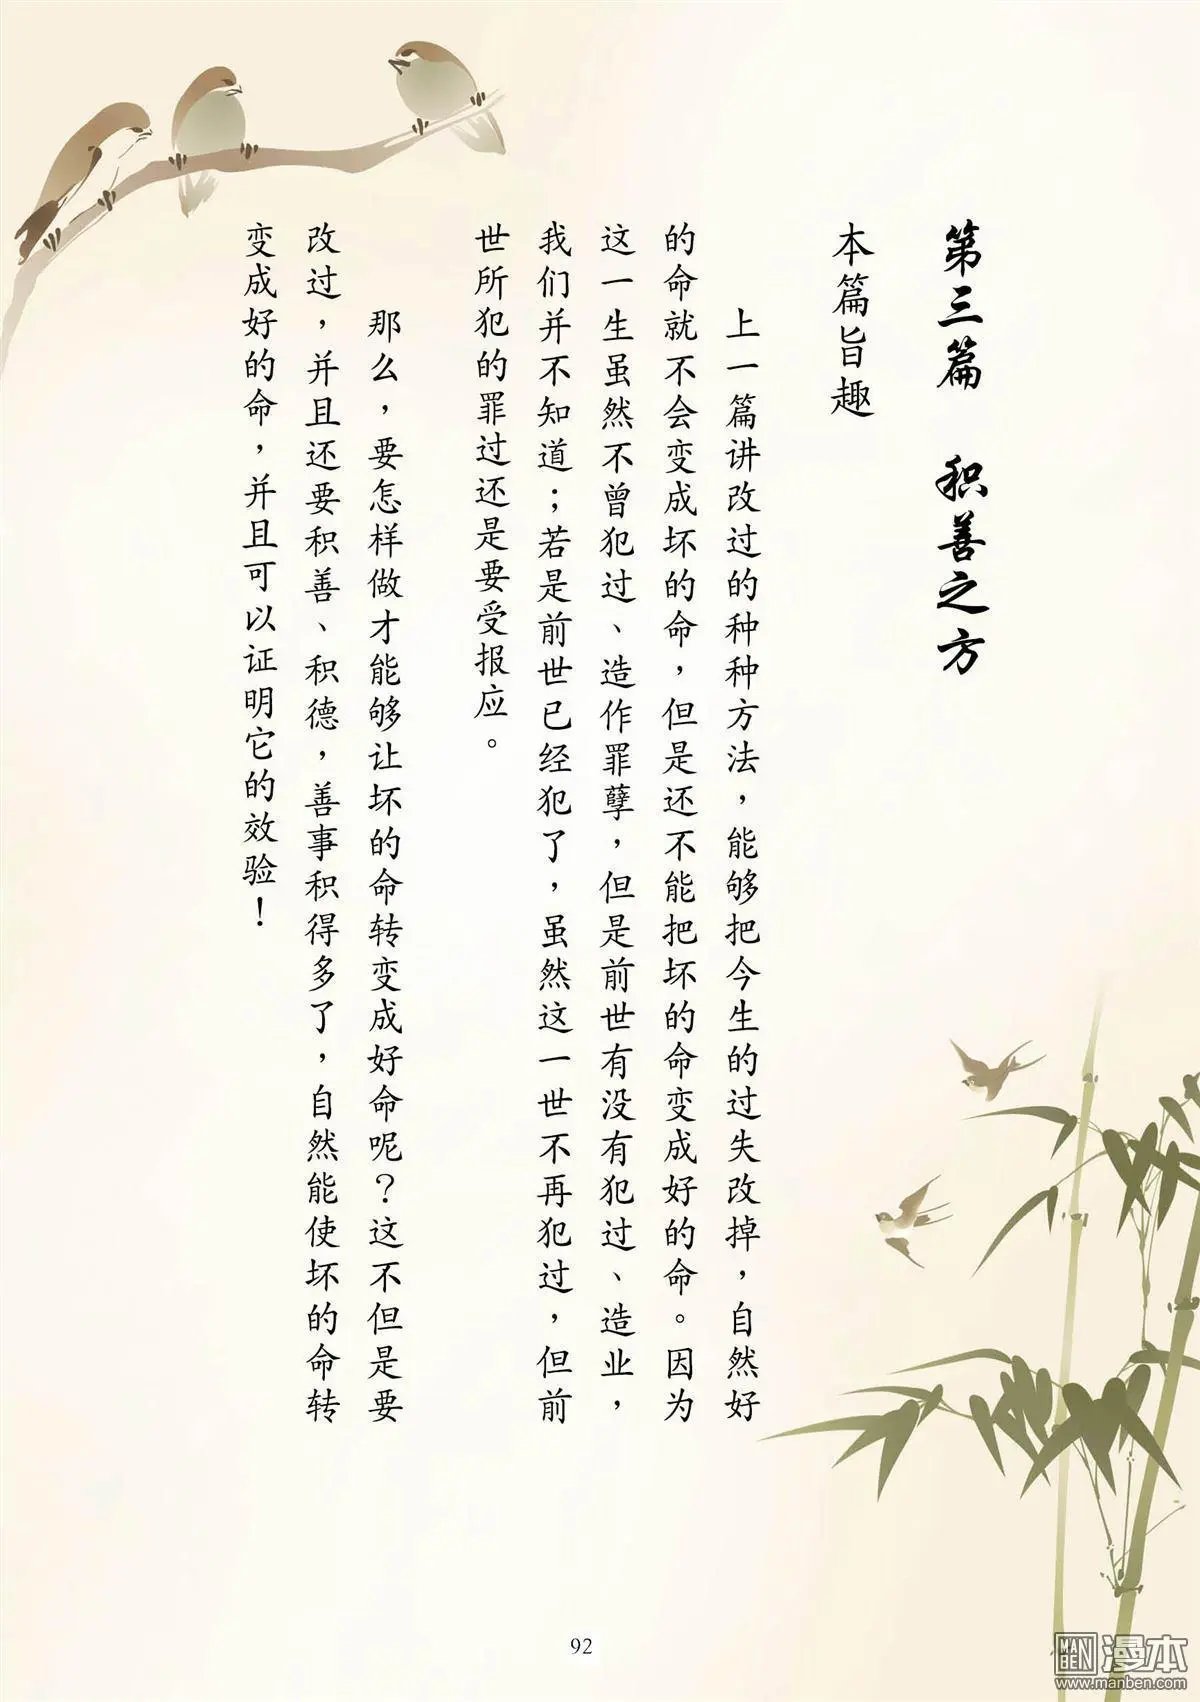 第三篇　积善之方
本篇旨趣
上一篇讲改过的种种方法，能够把今生的过失改掉，自然好
的命就不会变成坏的命，但是还不能把坏的命变成好的命。因为
这一生虽然不曾犯过、造作罪孽，但是前世有没有犯过、造业，
我们并不知道；若是前世已经犯了，虽然这一世不再犯过，但前
世所犯的罪过还是要受报应。
那么，要怎样做才能够让坏的命转变成好命呢？这不但是要
改过，并且还要积善、积德，善事积得多了，自然能使坏的命转
变成好的命，并且可以证明它的效验！
92
MAN
BEN
漫本
www.manben.com